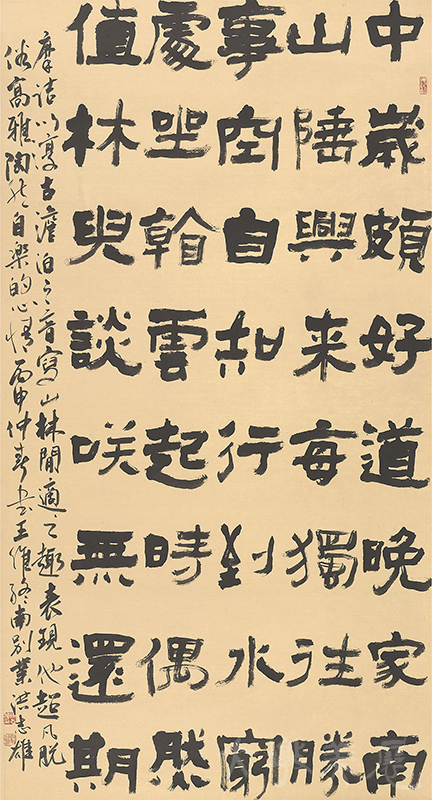 中歲頗好道晚家南
山陲興來每獨往勝
事空自知行到水窮
處坐看雲起時偶然
值林叟談咲無還期
摩詰以夐古澹泊之音寫山林閒適之趣表現他超凡脫
俗高雅陶然自樂的心情丙申仲春書王維終南別業洪志雄